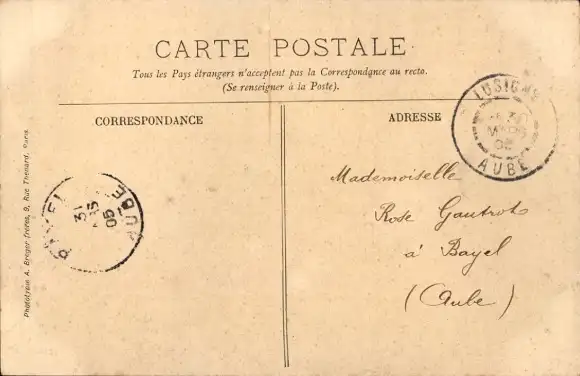 CARTE POSTALE
Tous les Pays étrangers n'acceptent pas la Correspondance au recto.
(Se renseigner à la Poste).
CORRESPONDANCE
ADRESSE
LUSIGNY
MARS
AUBE
Mademoiselle
Rose Gautrot
à Bayel
(Aube)
BAYEL
31
MARS
05
AUBE
Phototypie A. Breger frères, 9, Rue Thénard, Paris.